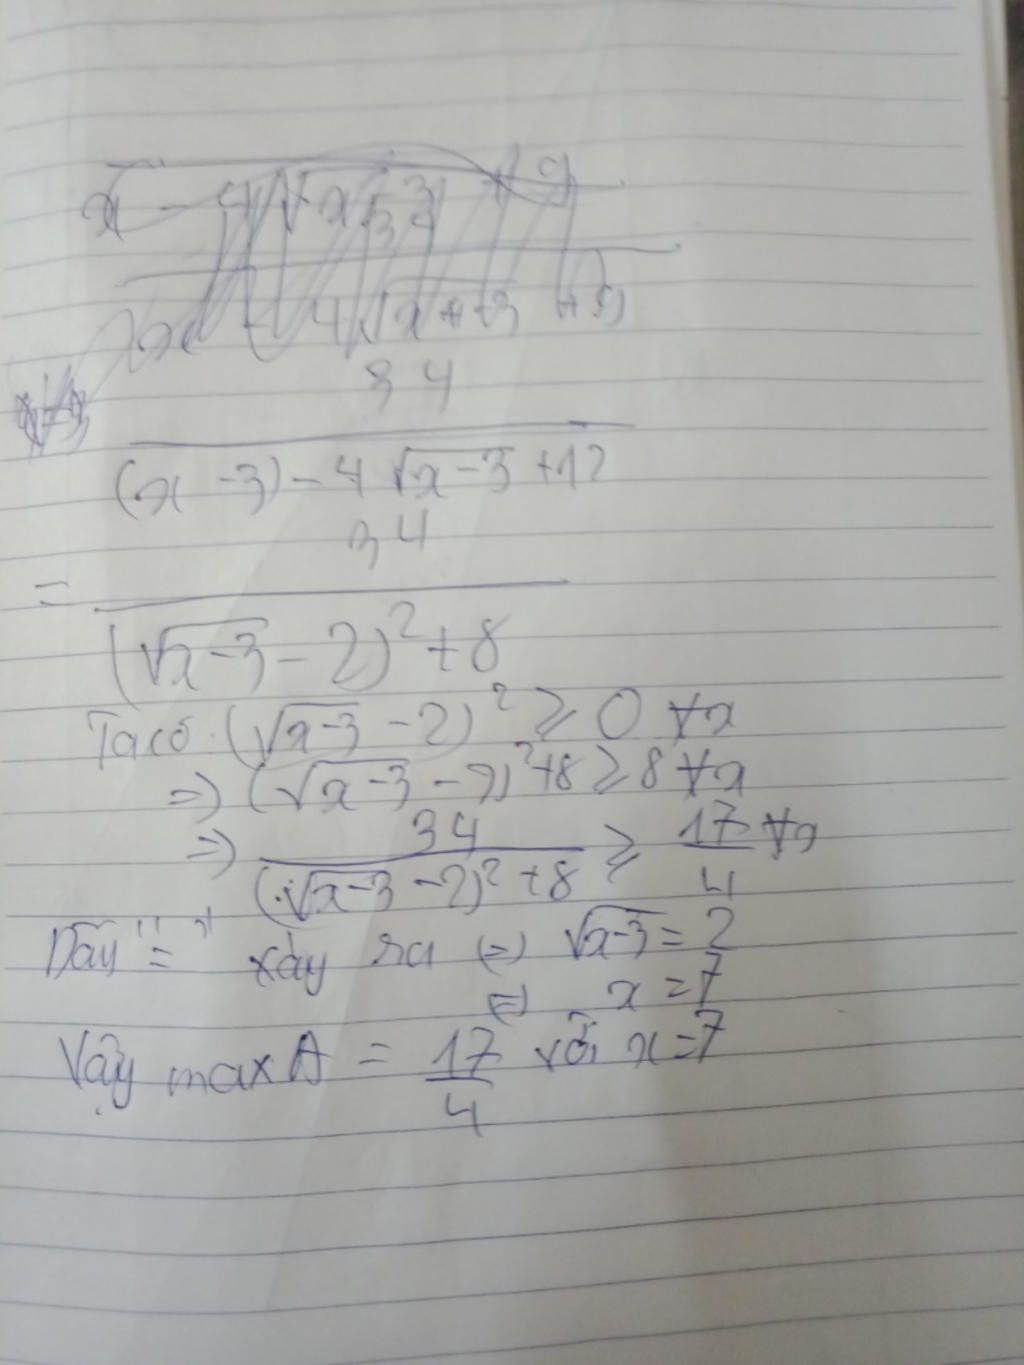 34
(x - 3) - 4 √x-3 + 12
34
=
(√x-3 - 2)² + 8
Ta có (√x-3 - 2)² ≥ 0 ∀x
=> (√x-3 - 2)² + 8 ≥ 8 ∀x
=> 34 / (√x-3 - 2)² + 8 ≥ 17 / 4 ∀x
Dấy "=" xảy ra (=) √x-3 = 2
(=) x = 7
Vậy max A = 17 / 4 với x = 7